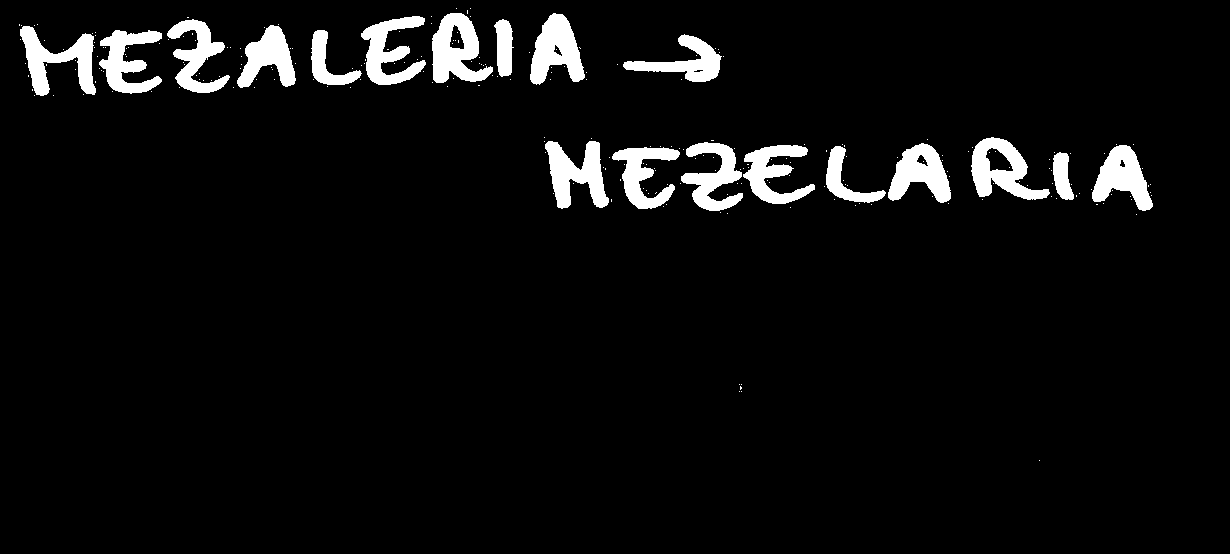 MEZALERIA →
MEZELARIA